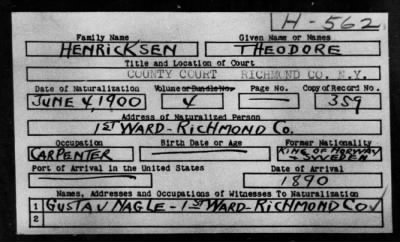 H-562
Family Name Given Name or Names
HENRICKSEN THEODORE
Title and Location of Court
COUNTY COURT RICHMOND CO. N.Y.
Date of Naturalization Volume or Bundle No. Page No. Copy of Record No.
JUNE 4, 1900 4 — 359
Address of Naturalized Person
1ST WARD-RICHMOND CO.
Occupation Birth Date or Age Former Nationality
CARPENTER — KING OF NORWAY + SWEDEN
Port of Arrival in the United States Date of Arrival
— 1890
Names, Addresses and Occupations of Witnesses To Naturalization
1 GUSTAV NAGLE-1ST WARD-RICHMOND CO. √
2